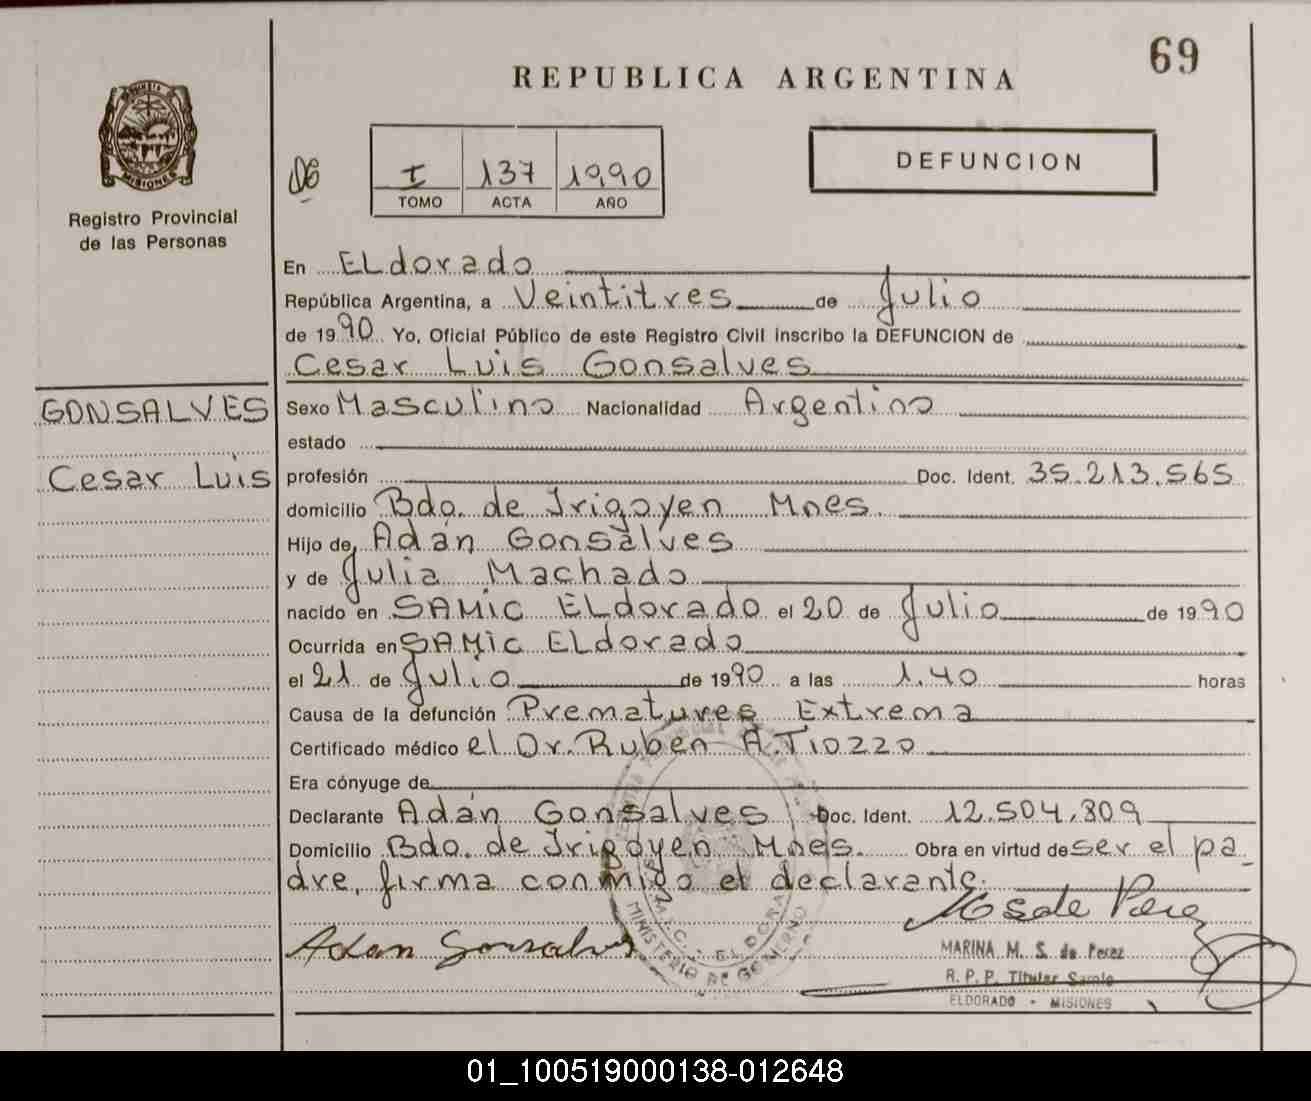 69
REPUBLICA ARGENTINA
MISIONES
Registro Provincial
de las Personas
I 137 19,90
TOMO ACTA AÑO
DEFUNCION
En ELdorado
República Argentina, a Veintitres de Julio
de 1990 Yo, Oficial Público de este Registro Civil inscribo la DEFUNCION de
Cesar Luis Gonsalves
GONSALVES
Cesar Luis
Sexo Masculino Nacionalidad Argentino
estado
profesión Doc. Ident. 35.213.565
domicilio Bdo. de Irigoyen Mnes.
Hijo de Adán Gonsalves
y de Julia Machado
nacido en SAMIC ELdorado el 20 de Julio de 1990
Ocurrida en SAMIC ELdorado
el 21 de Julio de 1990 a las 1.40 horas
Causa de la defunción Prematures Extrema
Certificado médico el Dr. Ruben A. Tiozzo
Era cónyuge de
Declarante Adán Gonsalves Doc. Ident. 12.504.809
Domicilio Bdo. de Irigoyen Mnes. Obra en virtud de ser el pa_
dre, firma conmigo el declarante.
Adan Gonsalves
MINISTERIO DE GOBIERNO
MARINA M. S. de Perez
R. P. P. Titular Samic
ELDORADO - MISIONES
01_100519000138-012648